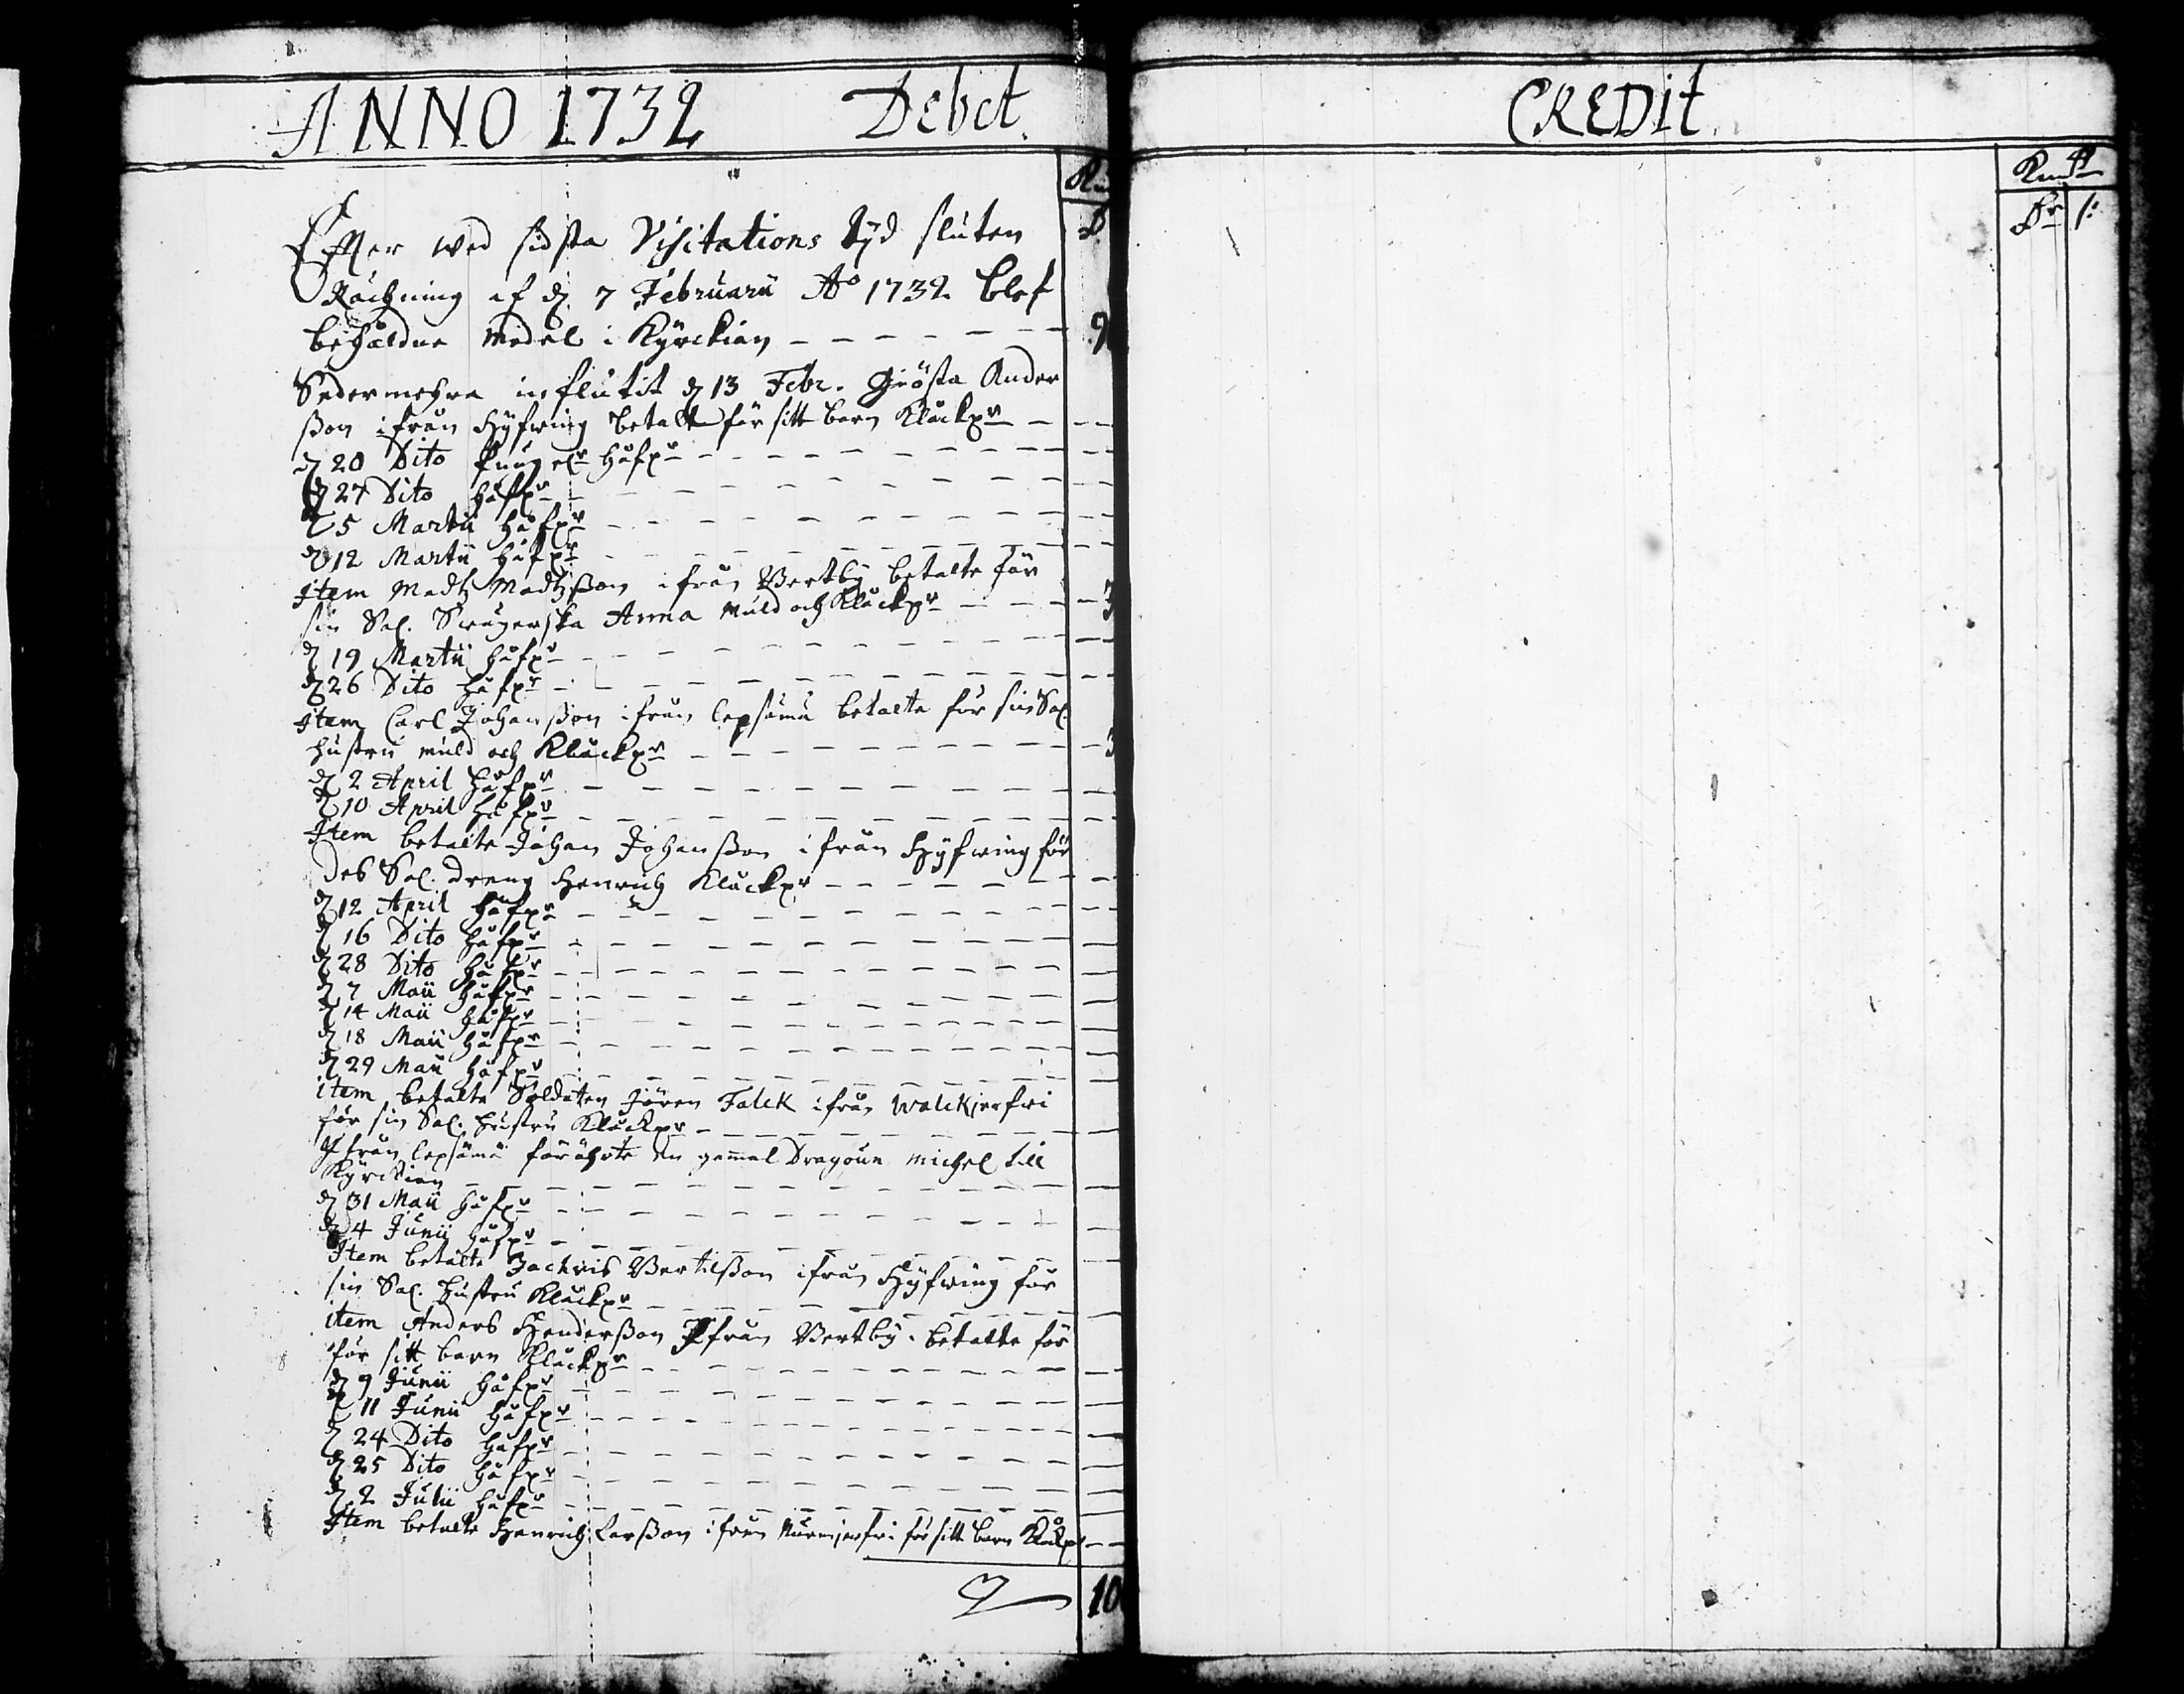 ANNO 1732 Debet.
Efter wed sidsta Visitations tyd sluten
Rächning af d. 7 Februarii Ao 1732 blef
behåldne medel i Kyrckian
9
Sedermehra influtit d 13 Febr. Giösta Ander
ßon ifrån Hyfwing betalte för sitt barn Klåckpr
d 20 Dito håfpr
d 27 Dito håfpr
d 5 Martii håfpr
d 12 Martii håfpr
Item Madtz Madtzßon ifrån Vertby betalte för
sin Sal. Swägerska Anna muld och Klåckpr
3
d 19 Martii håfpr
d 26 Dito håfpr
Item Carl Johanßon ifrån lepsämä betalte för sin Sal.
hustru muld och Klåckpr
3
d 2 April håfpr
d 10 April håfpr
Item betalte Johan Johanßon ifrån Hyfwing för
deß Sal. dreng Henrich Klåckpr
d 12 April håfpr
d 16 Dito håfpr
d 28 Dito håfpr
d 7 Maii håfpr
d 14 Maii håfpr
d 18 Maii håfpr
d 29 Maii håfpr
item betalte Soldaten Jören Falck ifrån Walckjerfwi
för sin Sal. hustru Klåckpr
Ifrån lepsämä förährte en gammal Dragoun michel till
Kyrckian
d 31 Maii håfpr
d 4 Junii håfpr
Item betalte Zachris Bertilßon ifrån Hyfwing för
sin Sal. hustru Klåckpr
item Anders Henderßon Ifrån Vertby betalte för
för sitt barn Klåckpr
d 9 Junii håfpr
d 11 Junii håfpr
d 24 Dito håfpr
d 25 Dito håfpr
d 2 Julii håfpr
Item betalte Henrich Larßon ifrån Nurmjerfwi för sitt barn Klåckpr
10
CREDIt.